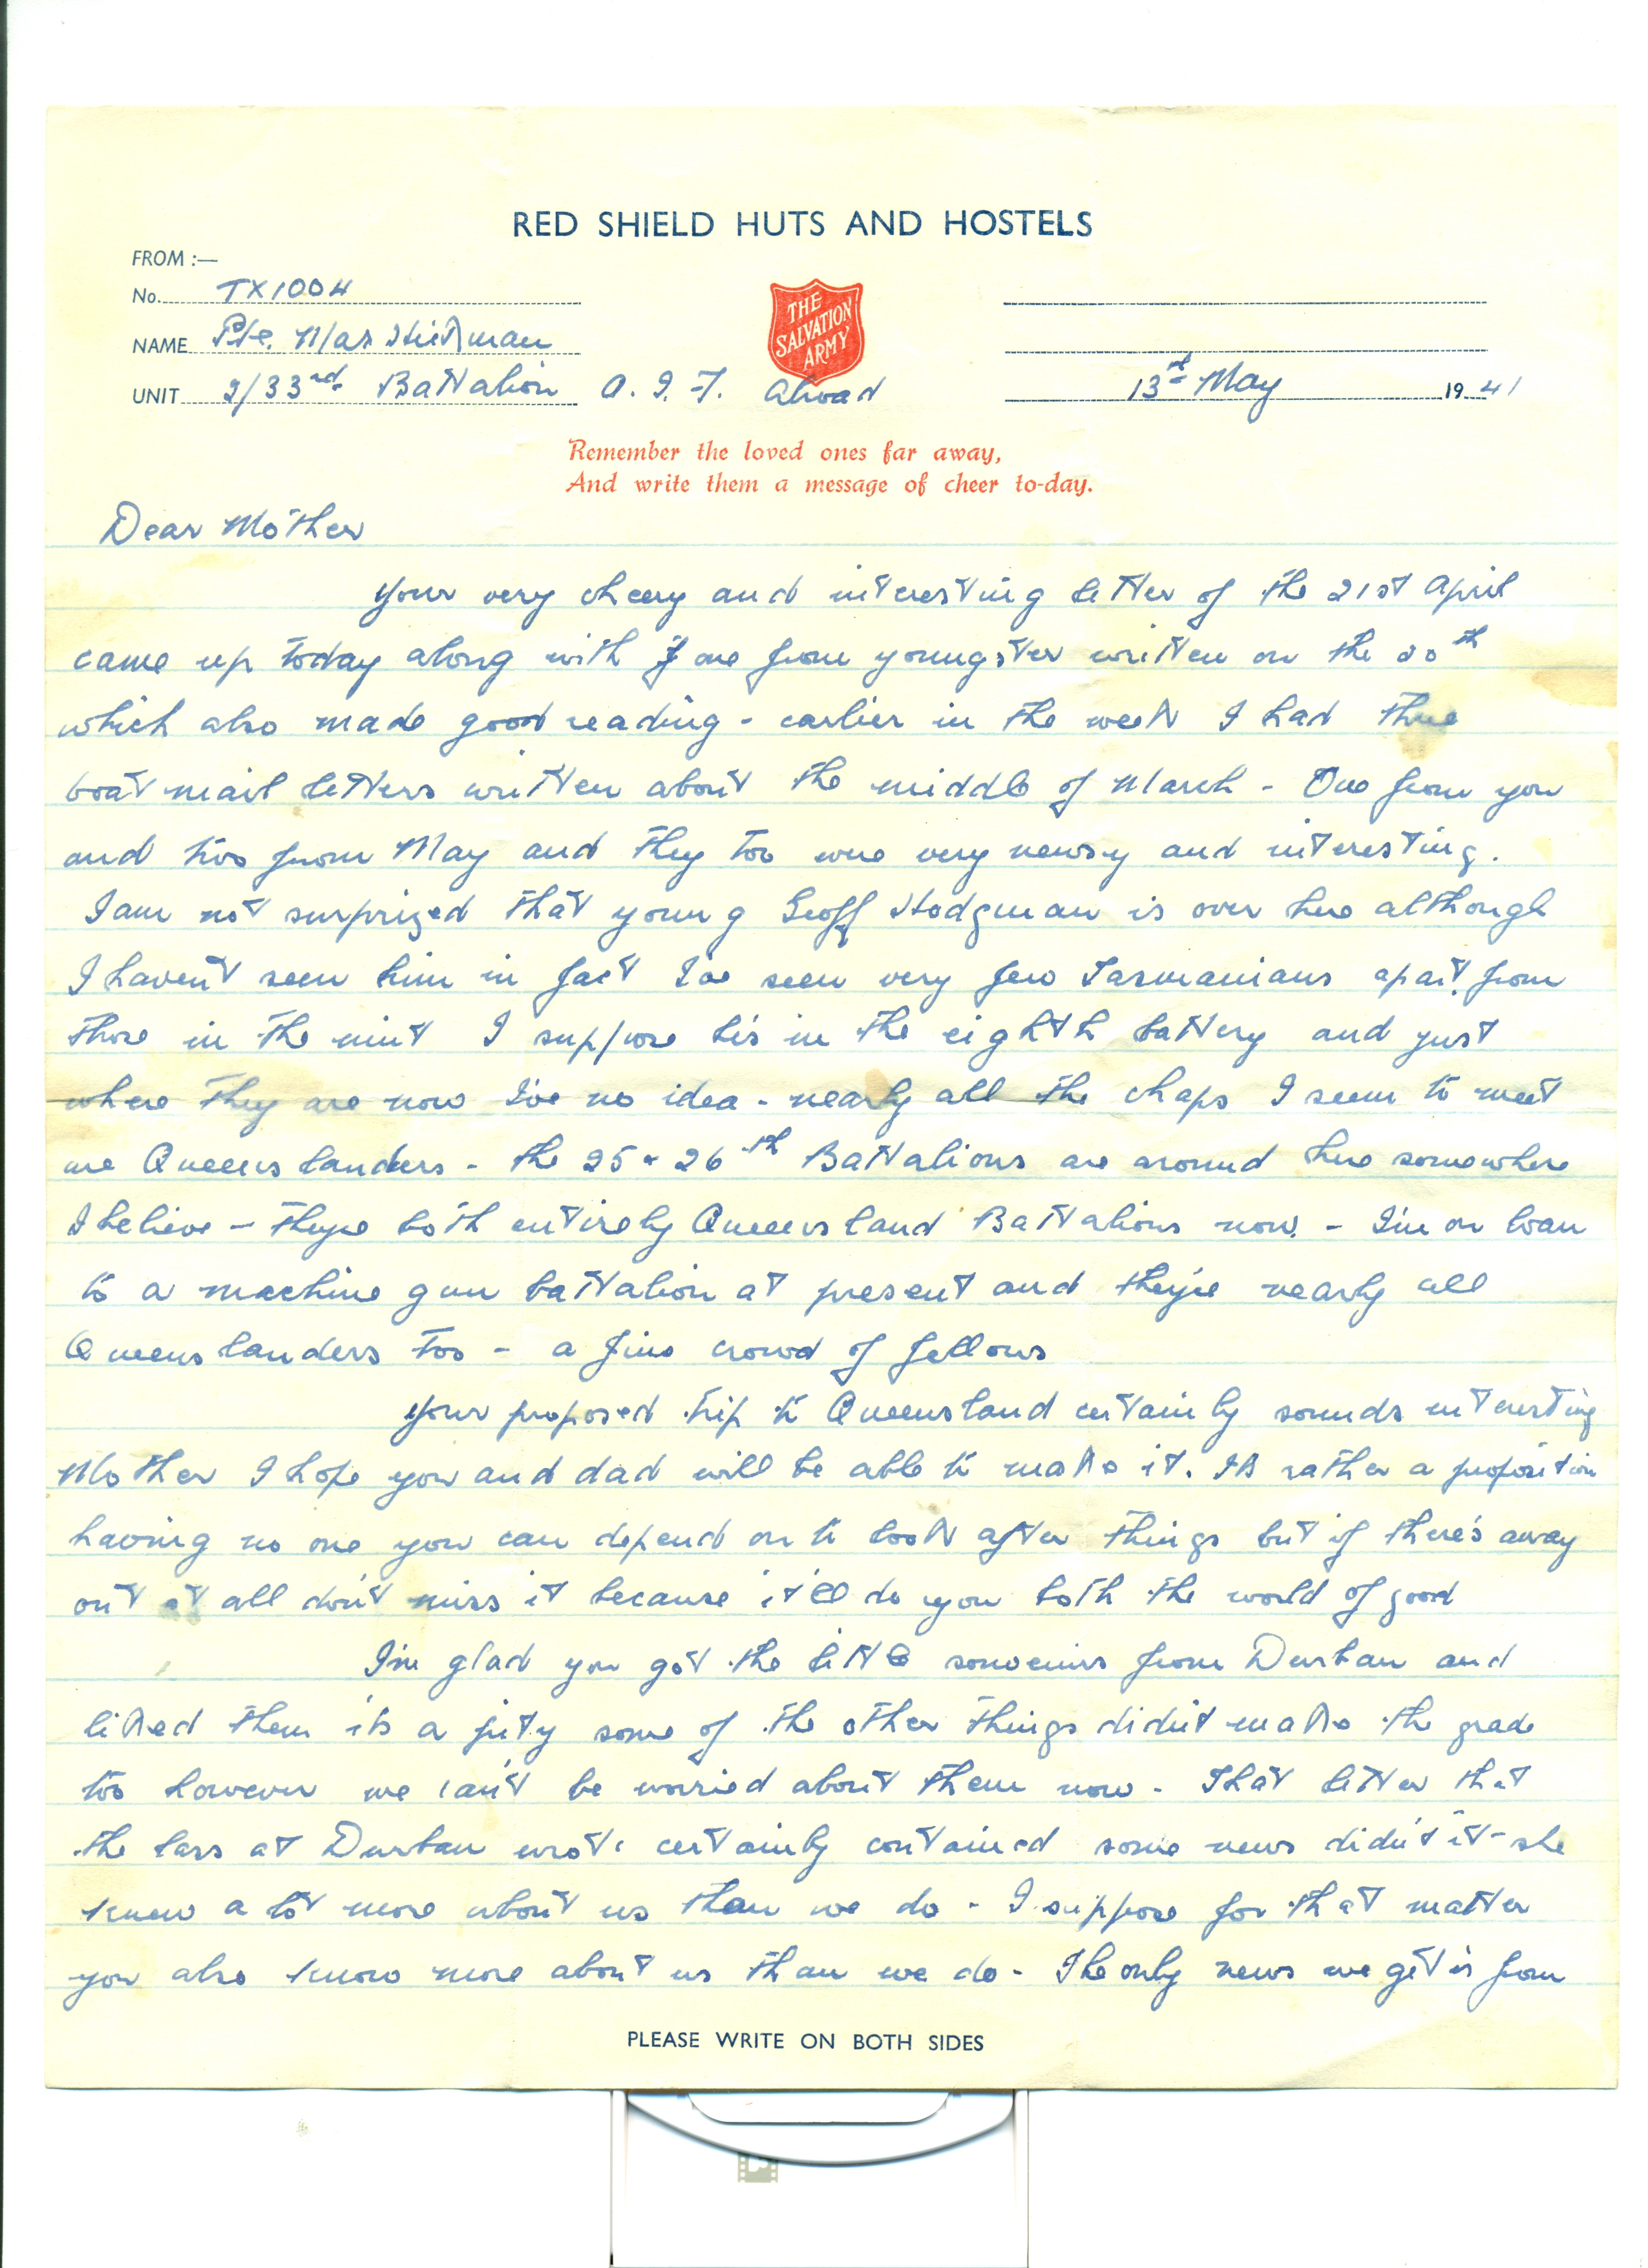 RED SHIELD HUTS AND HOSTELS
FROM :—
No. TX1004
NAME Pte. Max Hickman
UNIT 2/33rd Battalion A. I. F. Abroad
THE SALVATION ARMY
13st May 1941
Remember the loved ones far away,
And write them a message of cheer to-day.
Dear Mother
Your very cheery and interesting letter of the 21st April
came up today along with one from youngster written on the 20th
which also made good reading - earlier in the week I had three
boat mail letters written about the middle of March - One from you
and two from May and they too were very newsy and interesting.
I am not surprized that young Geoff Hodgman is over here although
I haven't seen him in fact I've seen very few Tasmanians apart from
those in the unit I suppose he's in the eighth battery and just
where they are now I've no idea - nearly all the chaps I seem to meet
are Queenslanders - the 25 & 26th Battalions are around here somewhere
I believe - theyre both entirely Queensland Battalions now. - I'm on loan
to a machine gun battalion at present and they're nearly all
Queenslanders too - a fine crowd of fellows
Your proposed trip to Queensland certainly sounds interesting
Mother I hope you and dad will be able to make it. Its rather a proposition
having no one you can depend on to look after things but if there's away
out at all don't miss it because it'll do you both the world of good
I'm glad you got the little souvenirs from Durban and
liked them its a pity some of the other things didn't make the grade
too however we can't be worried about them now - That letter that
the lass at Durban wrote certainly contained some news didn't it - she
knew a lot more about us than we do - I suppose for that matter
you also know more about us than we do - The only news we get is from
PLEASE WRITE ON BOTH SIDES